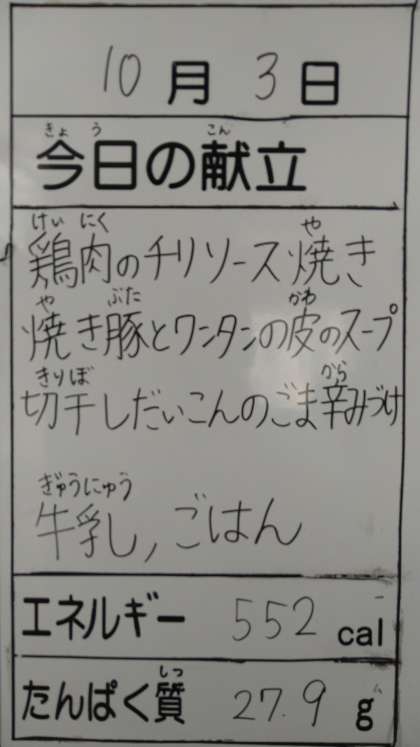 10月3日
きょう こん
今日の献立
けいにく や
鶏肉のチリソース焼き
や ぶた かわ
焼き豚とワンタンの皮のスープ
きりぼ から
切干しだいこんのごま辛みづけ
ぎゅうにゅう
牛乳し,ごはん
エネルギー 552 cal
しつ
たんぱく質 27.9 g